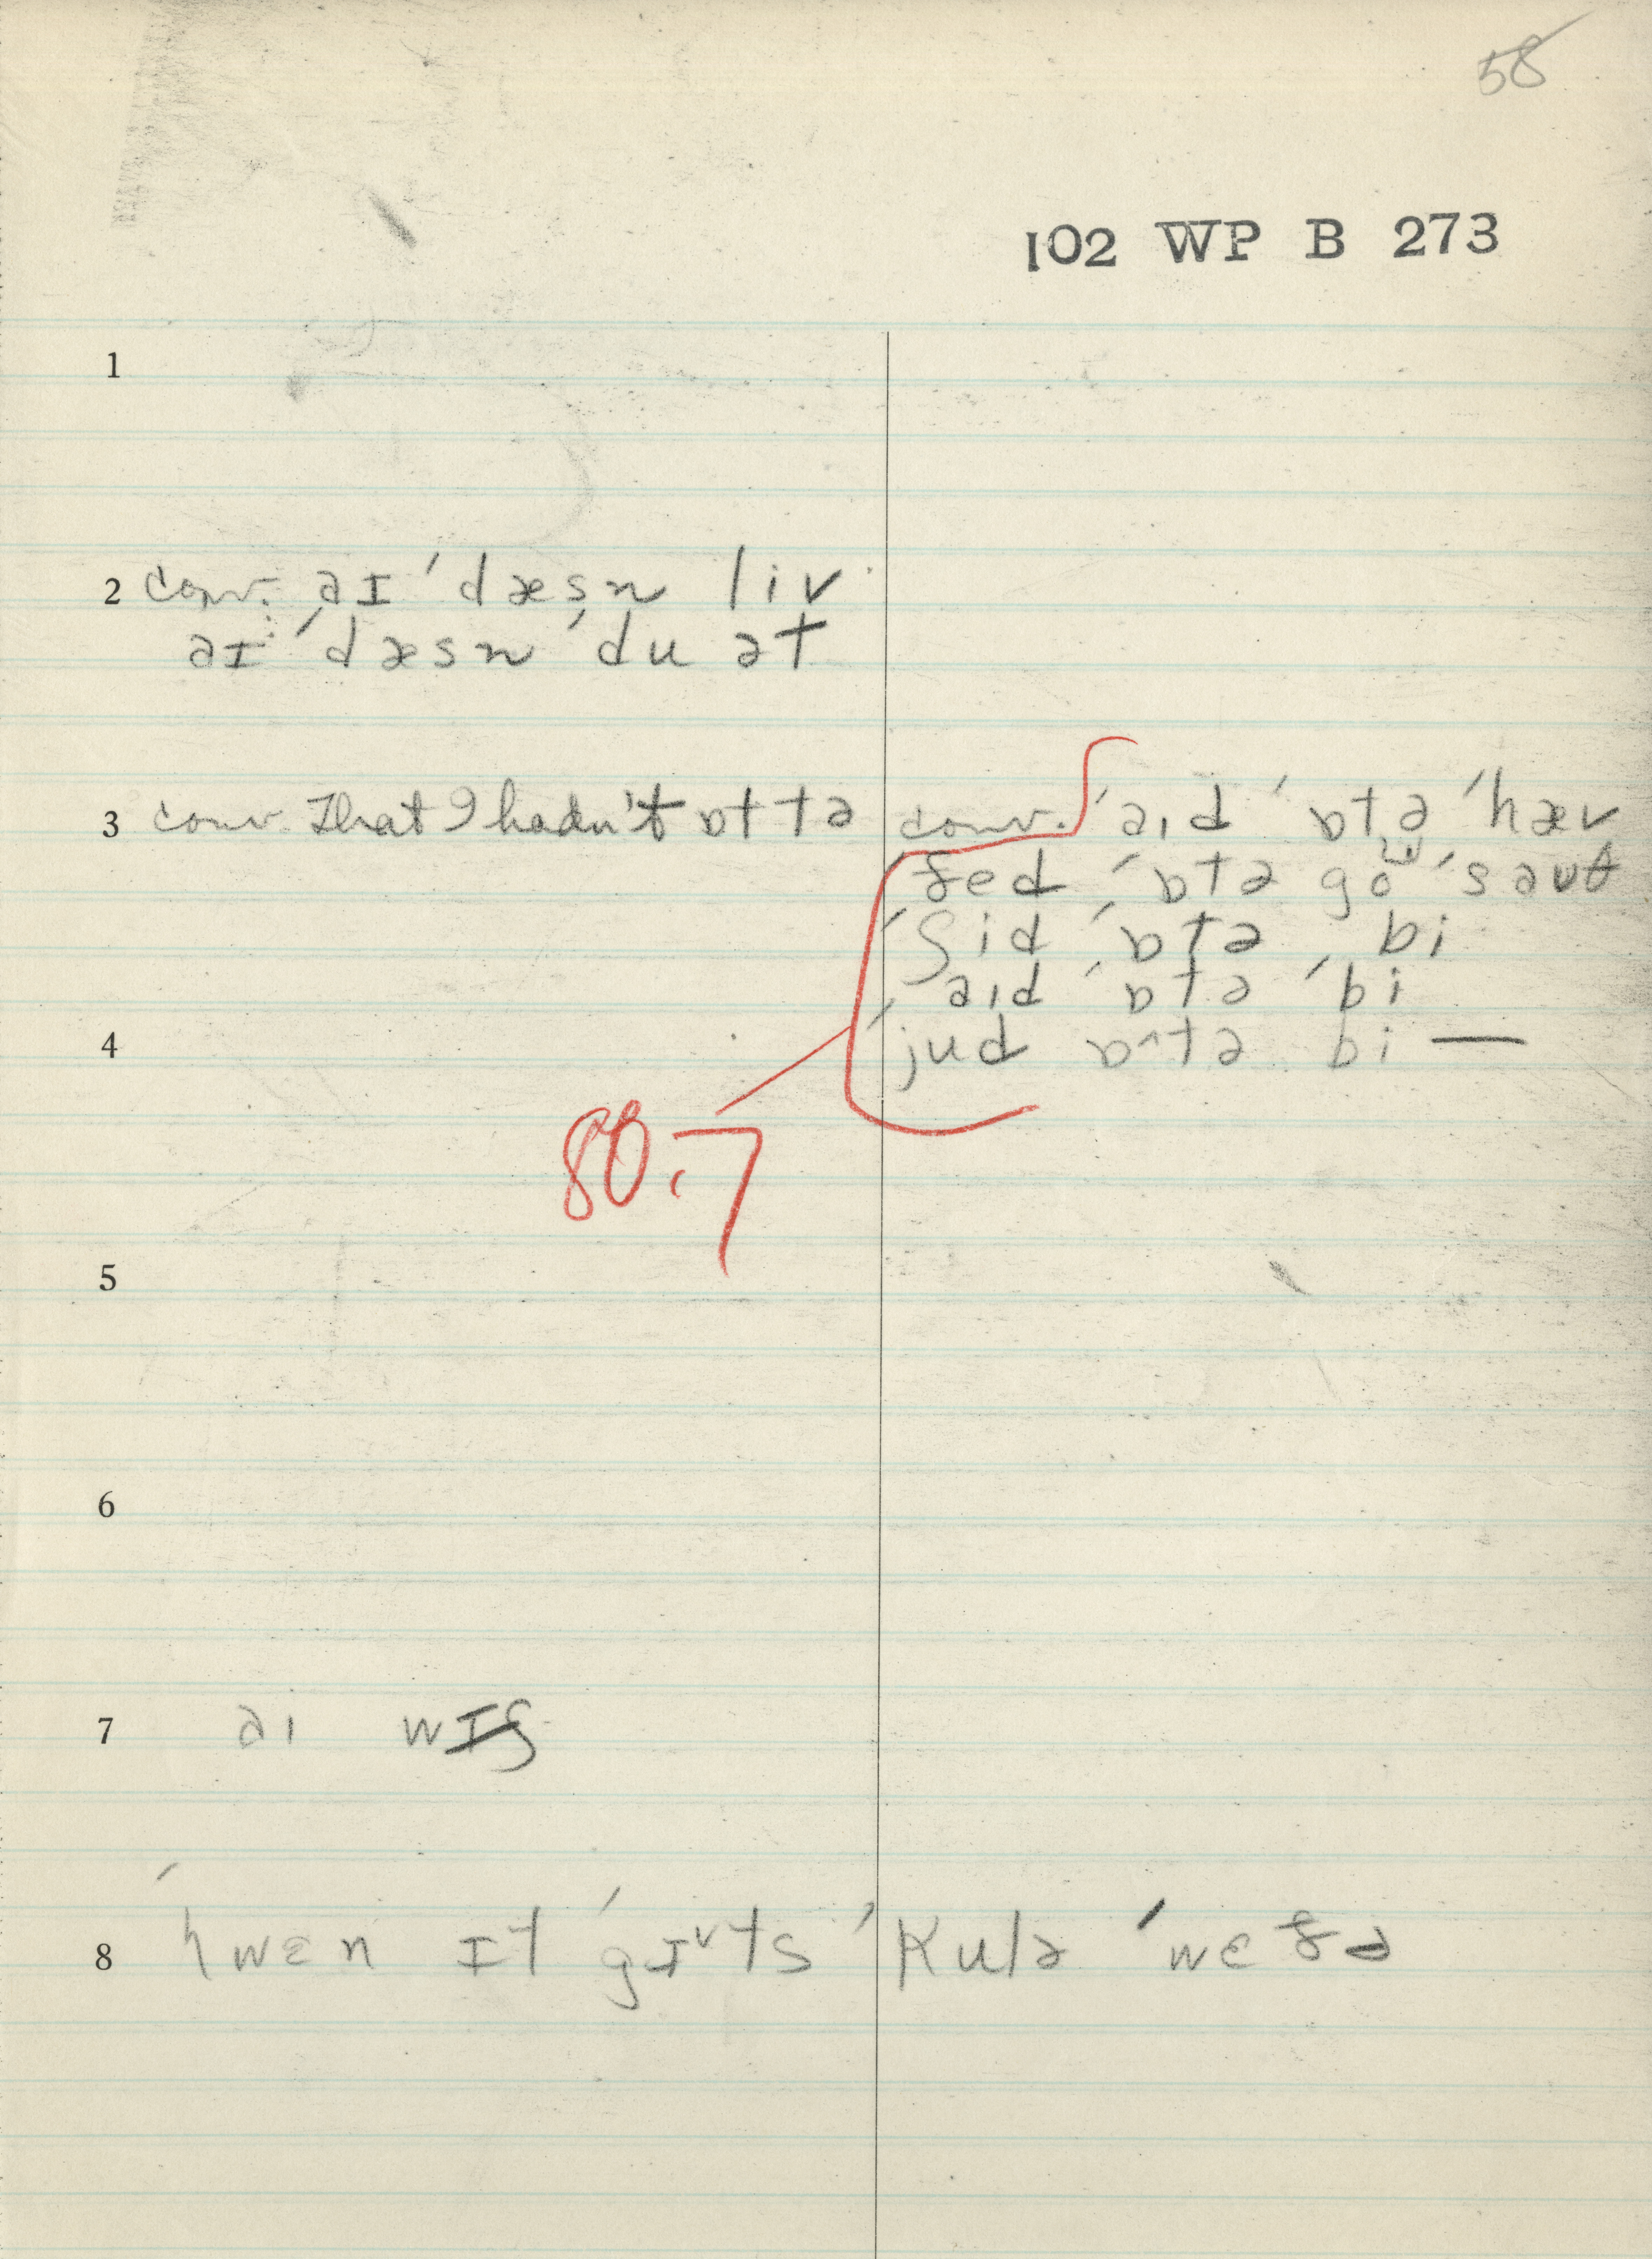 58
102 WP B 273
1
2 conv. əɪ ˈdæsn liv
əɪ ˈdæsn ˈdu ət
3 conv. That I hadn't ɒt tə conv. ˈaɪd ˈɒtə ˈhæv
ðed ˈɒtə go ˈsəuθ
ˈʃid ˈɒtə bi
ˈaɪd ˈɒtə ˈbi
4 ˈjud ɒ^tə bi —
80.7
5
6
7 əɪ wɪʃ
8 ˈhwɛn ɪt ˈgɪ˅ts ˈkulə ˈwɛðə